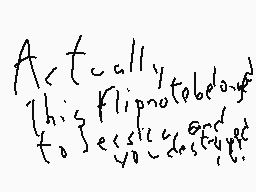 Actually
this flipnote belonged
to Jessica and
you destroyed
it!